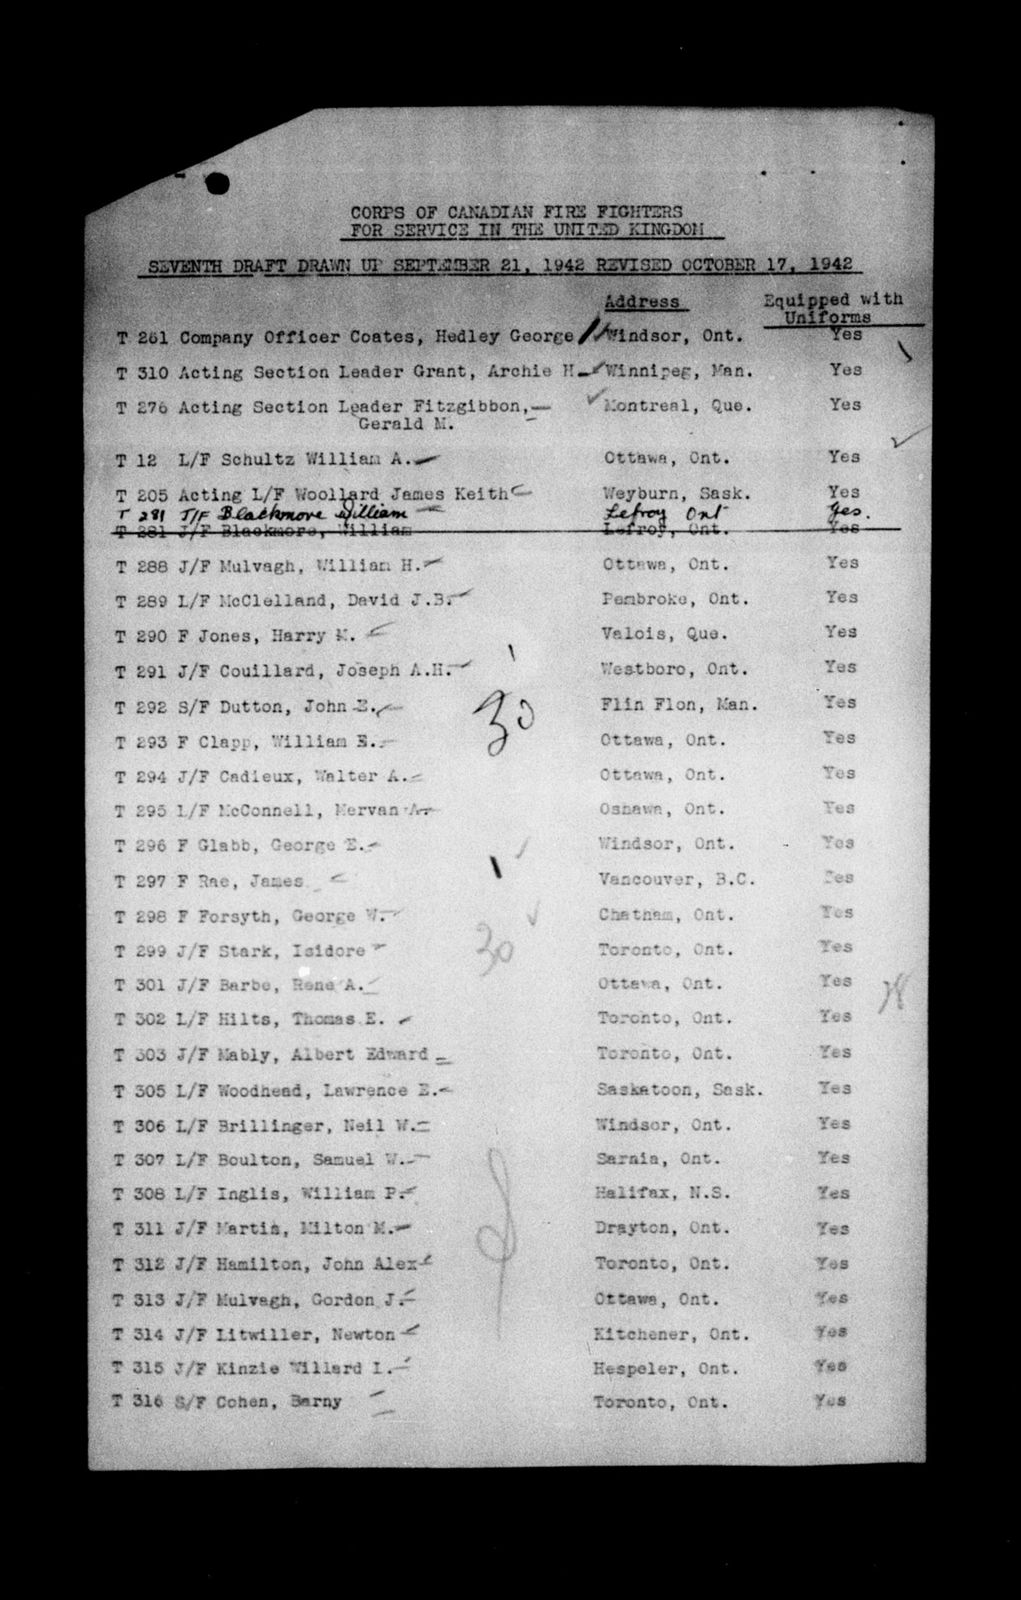 CORPS OF CANADIAN FIRE FIGHTERS
FOR SERVICE IN THE UNITED KINGDOM
SEVENTH DRAFT DRAWN UP SEPTEMBER 21, 1942 REVISED OCTOBER 17, 1942
Address Equipped with
Uniforms
T 261 Company Officer Coates, Hedley George Windsor, Ont. Yes
T 310 Acting Section Leader Grant, Archie H. Winnipeg, Man. Yes
T 276 Acting Section Leader Fitzgibbon, Montreal, Que. Yes
Gerald M.
T 12 L/F Schultz William A. Ottawa, Ont. Yes
T 205 Acting L/F Woollard James Keith Weyburn, Sask. Yes
T 281 J/F Blackmore William Lefroy Ont Yes.
T 281 J/F Blackmore, William Lefroy, Ont. Yes
T 288 J/F Mulvagh, William H. Ottawa, Ont. Yes
T 289 L/F McClelland, David J.B. Pembroke, Ont. Yes
T 290 F Jones, Harry M. Valois, Que. Yes
T 291 J/F Couillard, Joseph A.H. Westboro, Ont. Yes
T 292 S/F Dutton, John E. Flin Flon, Man. Yes
30
T 293 F Clapp, William E. Ottawa, Ont. Yes
T 294 J/F Cadieux, Walter A. Ottawa, Ont. Yes
T 295 L/F McConnell, Mervan A. Oshawa, Ont. Yes
T 296 F Glabb, George E. Windsor, Ont. Yes
T 297 F Rae, James Vancouver, B.C. Yes
T 298 F Forsyth, George W. Chatham, Ont. Yes
T 299 J/F Stark, Isidore Toronto, Ont. Yes
30
T 301 J/F Barbe, Rene A. Ottawa, Ont. Yes
T 302 L/F Hilts, Thomas E. Toronto, Ont. Yes
T 303 J/F Mably, Albert Edward Toronto, Ont. Yes
T 305 L/F Woodhead, Lawrence E. Saskatoon, Sask. Yes
T 306 L/F Brillinger, Neil W. Windsor, Ont. Yes
T 307 L/F Boulton, Samuel W. Sarnia, Ont. Yes
T 308 L/F Inglis, William P. Halifax, N.S. Yes
T 311 J/F Martin, Milton M. Drayton, Ont. Yes
T 312 J/F Hamilton, John Alex Toronto, Ont. Yes
T 313 J/F Mulvagh, Gordon J. Ottawa, Ont. Yes
T 314 J/F Litwiller, Newton Kitchener, Ont. Yes
T 315 J/F Kinzie Willard I. Hespeler, Ont. Yes
T 316 S/F Cohen, Barny Toronto, Ont. Yes